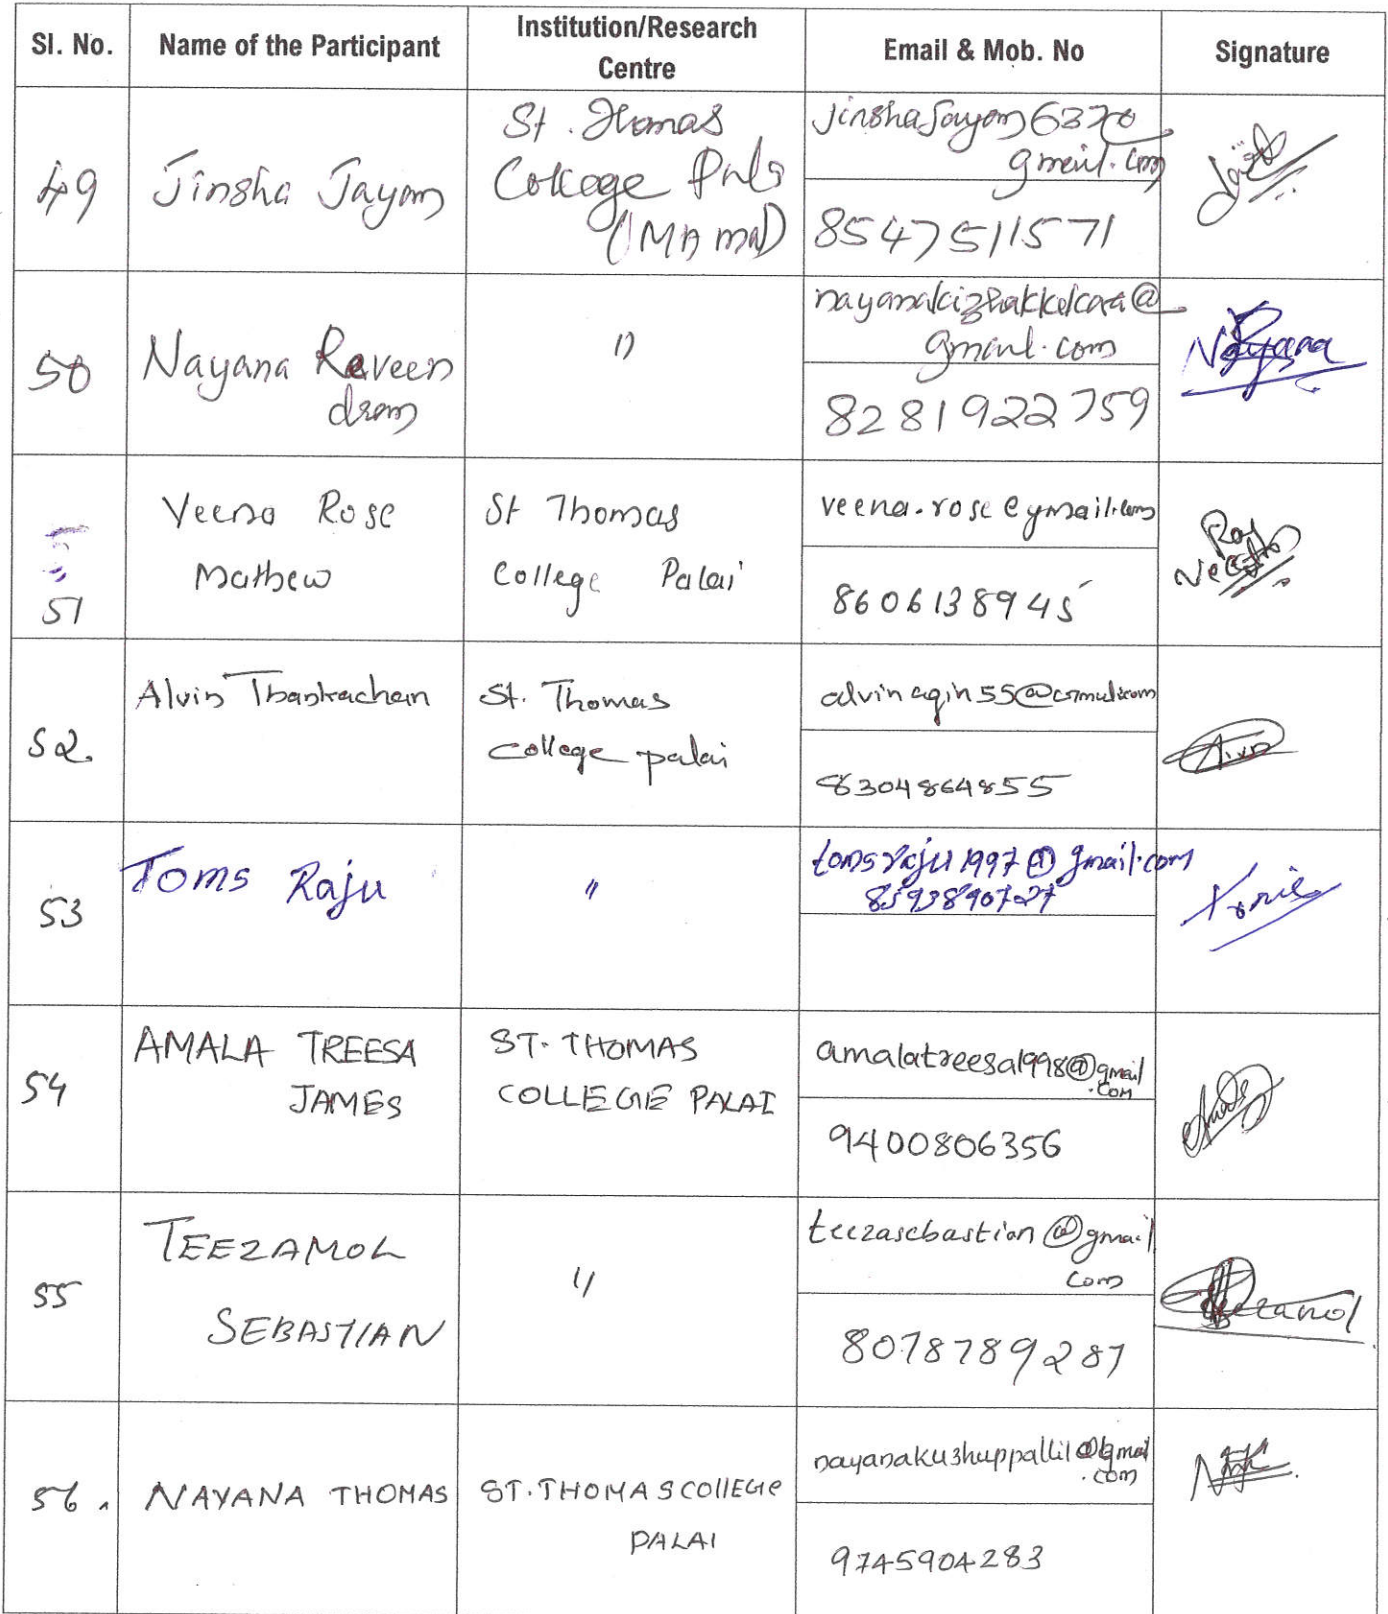 Sl. No. Name of the Participant Institution/Research Centre Email & Mob. No Signature
49 Jinsha Jayan St. Thomas College Pala (MA mal)
gmail.com
8547511571
50 Nayana Raveen dran 11
gmail.com
8281922759
Nayana
51 Veena Rose Mathew St Thomas College Palai
veena.rose@ymail.com
8606138945
52. Alvin Thankachan St. Thomas college palai
8304864855
53 Toms Raju 〃
tomsraju1997@gmail.com
8593890727
54 AMALA TREESA JAMES ST. THOMAS COLLEGE PALAI
amalatreesa1998@gmail.com
9400806356
55 TEEZAMOL SEBASTIAN 〃
teezasebastian@gmail com
8078789287
56. NAYANA THOMAS ST. THOMAS COllEGE PALAI
nayanakuzhuppallil@gmail.com
9745904283